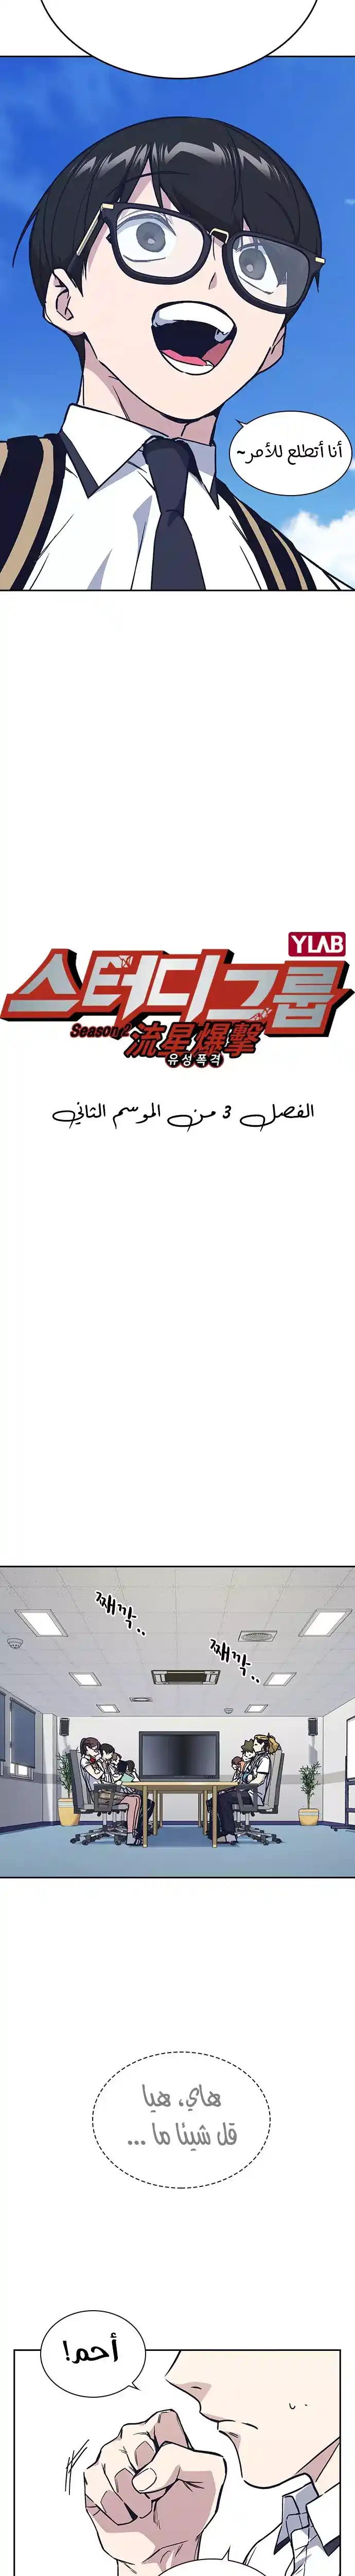 أنا أتطلع للأمر~
YLAB
스터디그룹
Season 2 流星爆擊
유성폭격
الفصل 3 من الموسم الثاني
째깍..
째깍..
هاي، هيا
قل شيئا ما ...
أحم!